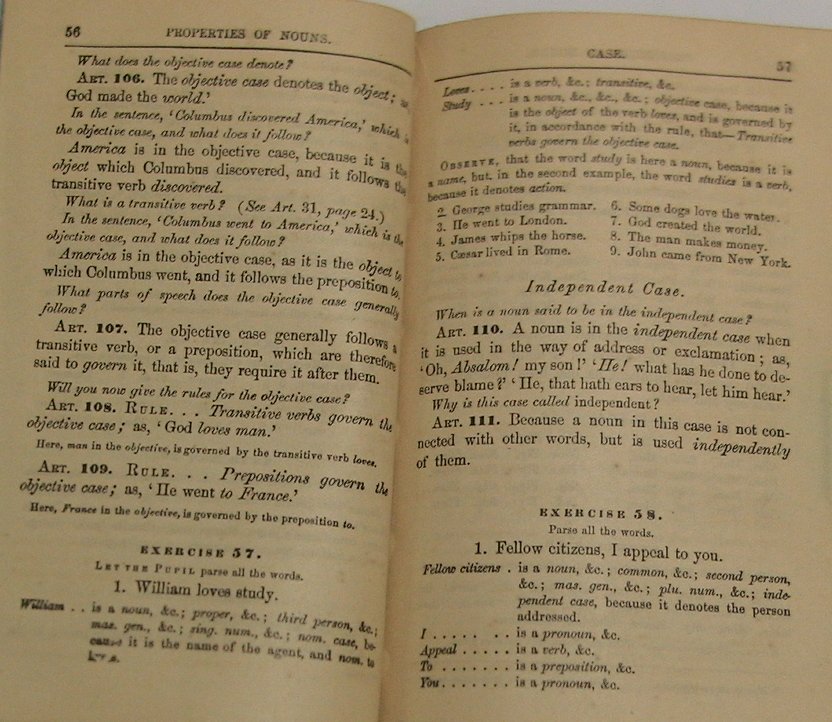 56 PROPERTIES OF NOUNS.
What does the objective case denote?
ART. 106. The objective case denotes the object; as,
God made the world.'
In the sentence, 'Columbus discovered America,' which is
the objective case, and what does it follow?
America is in the objective case, because it is the
object which Columbus discovered, and it follows the
transitive verb discovered.
What is a transitive verb? (See Art. 31, page 24.)
In the sentence, 'Columbus went to America,' which is the
objective case, and what does it follow?
America is in the objective case, as it is the object to
which Columbus went, and it follows the preposition to.
What parts of speech does the objective case generally
follow?
ART. 107. The objective case generally follows a
transitive verb, or a preposition, which are therefore
said to govern it, that is, they require it after them.
Will you now give the rules for the objective case?
ART. 108. RULE. . . Transitive verbs govern the
objective case; as, 'God loves man.'
Here, man in the objective, is governed by the transitive verb loves.
ART. 109. RULE. . . Prepositions govern the
objective case; as, 'He went to France.'
Here, France in the objective, is governed by the preposition to.
EXERCISE 57.
LET THE PUPIL parse all the words.
1. William loves study.
William . . is a noun, &c.; proper, &c.; third person, &c.;
mas. gen., &c.; sing. num., &c.; nom. case, be-
cause it is the name of the agent, and nom. to
CASE. 57
Loves. . . . is a verb, &c.; transitive, &c.
Study . . . is a noun, &c., &c., &c.; objective case, because it
is the object of the verb loves, and is governed by
it, in accordance with the rule, that—Transitive
verbs govern the objective case.
OBSERVE, that the word study is here a noun, because it is
a name, but, in the second example, the word studies is a verb,
because it denotes action.
2. George studies grammar. 6. Some dogs love the water.
3. He went to London. 7. God created the world.
4. James whips the horse. 8. The man makes money.
5. Cæsar lived in Rome. 9. John came from New York.
Independent Case.
When is a noun said to be in the independent case?
ART. 110. A noun is in the independent case when
it is used in the way of address or exclamation; as,
'Oh, Absalom! my son!' 'He! what has he done to de-
serve blame?' 'He, that hath ears to hear, let him hear.'
Why is this case called independent?
ART. 111. Because a noun in this case is not con-
nected with other words, but is used independently
of them.
EXERCISE 58.
Parse all the words.
1. Fellow citizens, I appeal to you.
Fellow citizens . is a noun, &c.; common, &c.; second person,
&c.; mas. gen., &c.; plu. num., &c.; inde-
pendent case, because it denotes the person
addressed.
I . . . . . . . . is a pronoun, &c.
Appeal . . . . . is a verb, &c.
To . . . . . . . is a preposition, &c.
You. . . . . . . is a pronoun, &c.